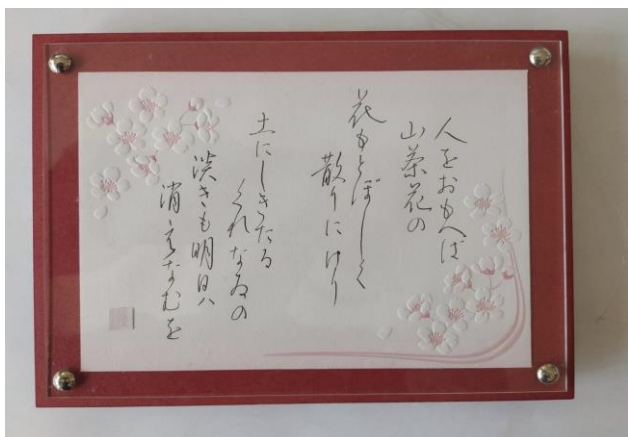 人をおもへば
山茶花の
花もとぼしく
散りにけり
土にしきたる
くれなゐの
淡きも明日ハ
消えなむを